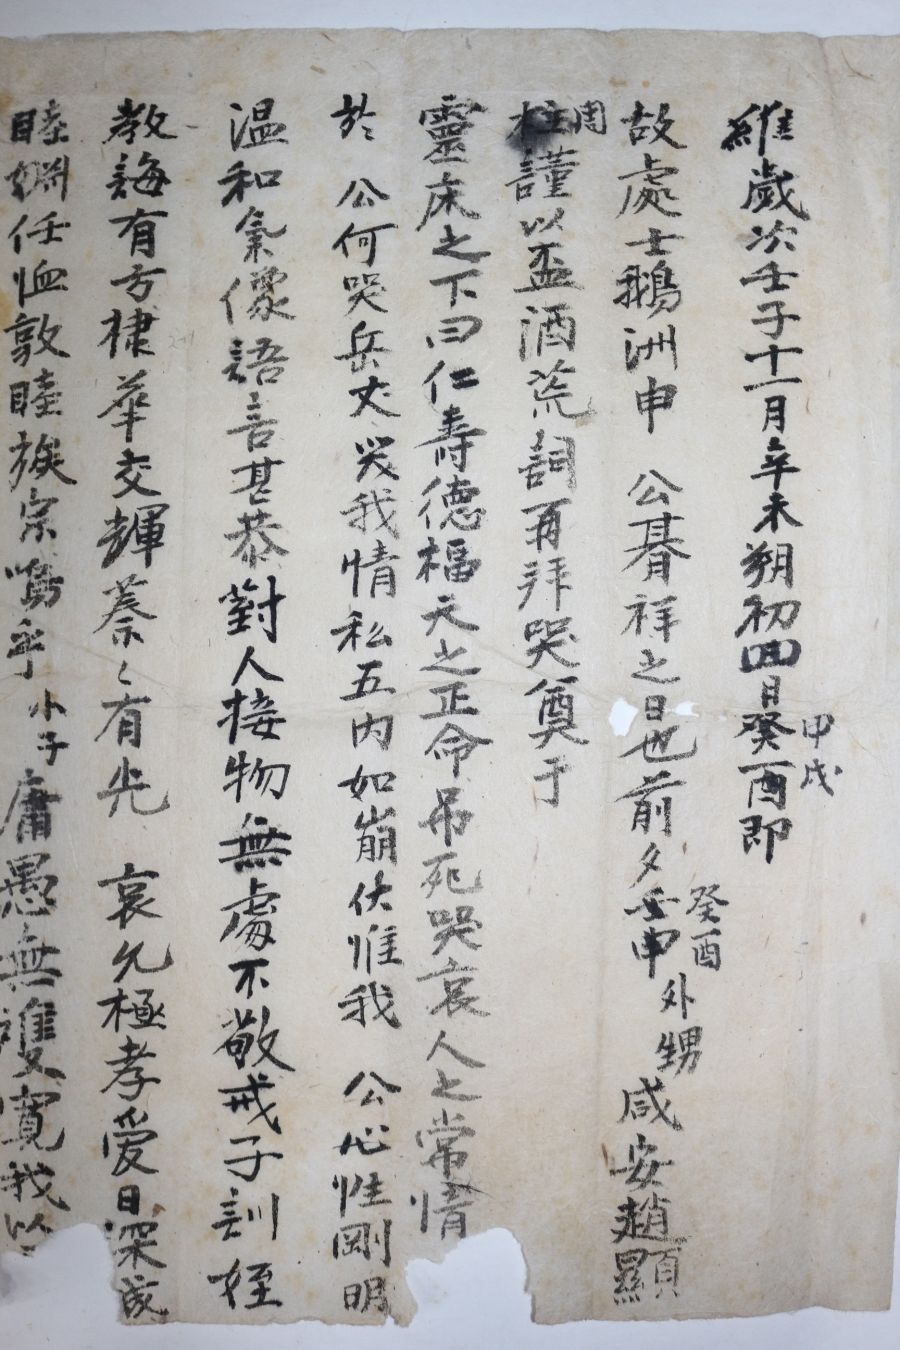 維歲次壬子十一月辛未朔初四日癸酉即
甲戌
故處士鵝洲申 公朞祥之日也前夕壬申外甥咸安趙顯
癸酉
周
柱謹以盃酒荒詞再拜哭奠于
靈床之下曰仁壽德福天之正命吊死哭哀人之常情
於 公何哭岳丈哭我情私五內如崩伏惟我 公心性剛明
温和氣像語言甚恭對人接物無處不敬戒子訓姪
教誨有方棣華交輝蔡〻有光 哀允極孝愛日深誠
睦婣任恤敦睦族宗嗚乎小子庸愚無雙寬我以